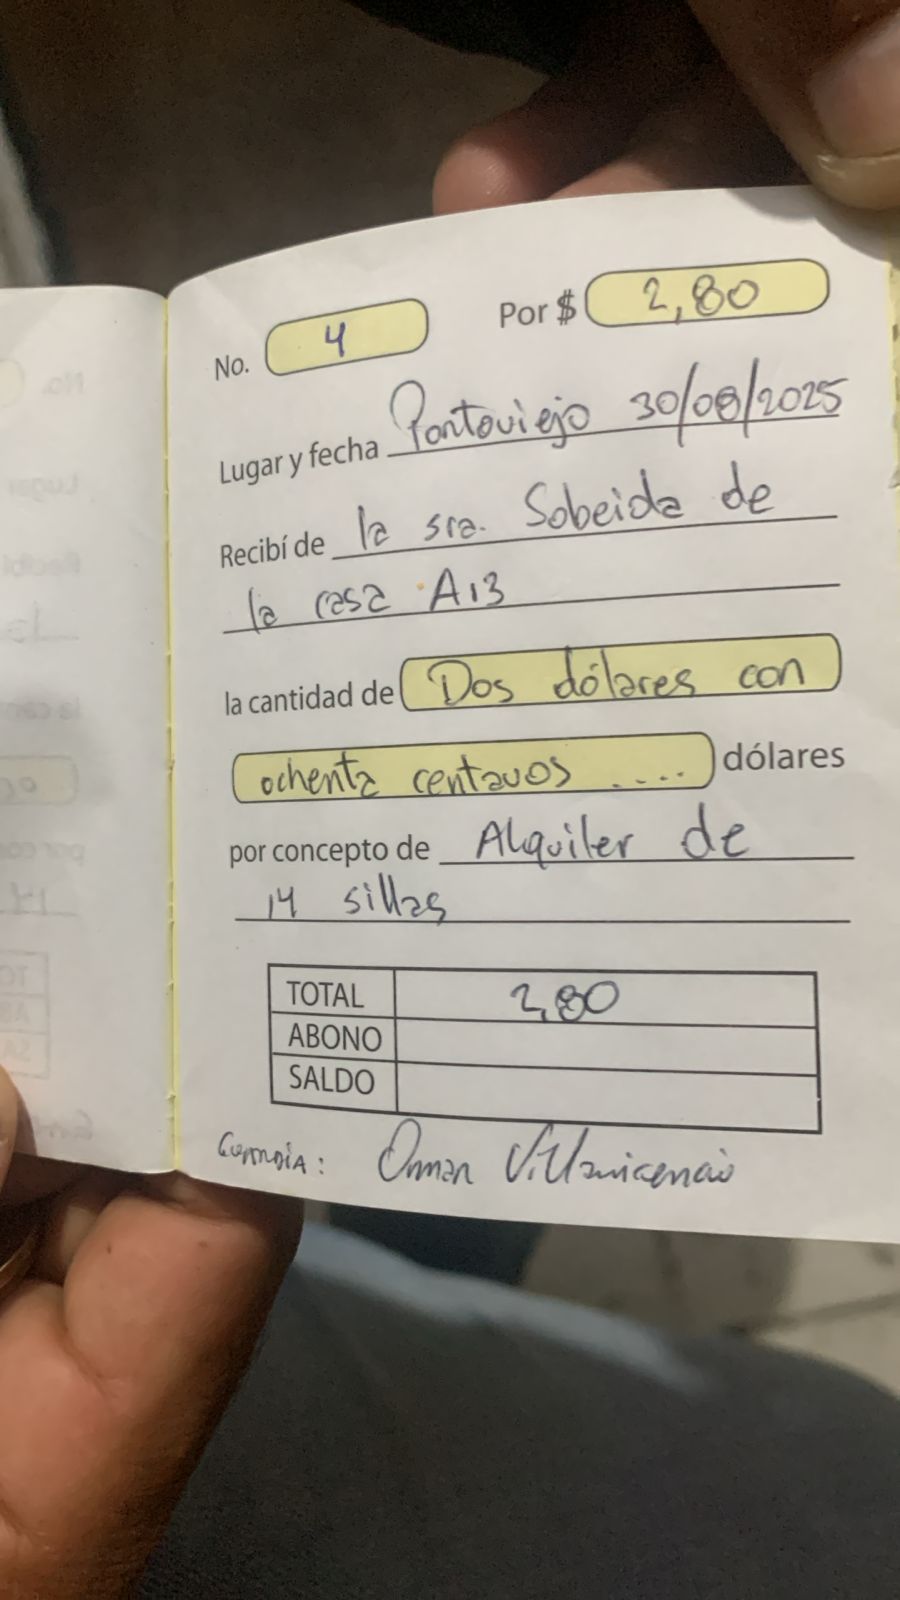 No. 4 Por $ 2,80
Lugar y fecha Portoviejo 30/08/2025
Recibí de la sra. Sobeida de
la casa A13
la cantidad de Dos dólares con
ochenta centavos .... dólares
por concepto de Alquiler de
14 sillas
TOTAL 2,80
ABONO
SALDO
Guardia: Omar Villavicencio